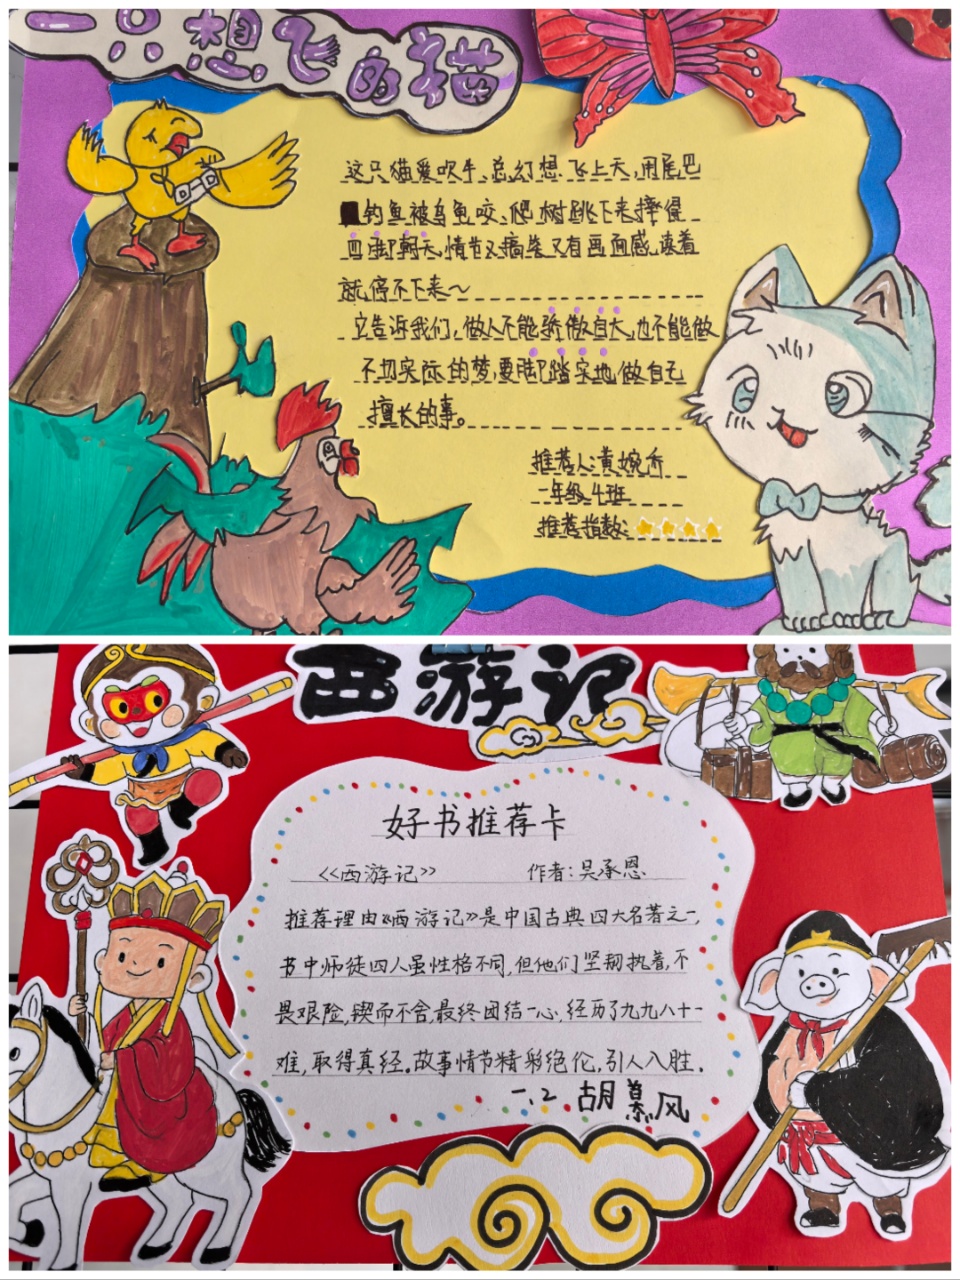 一只想飞的猫
这只猫爱吹牛、总幻想飞上天,用尾巴
钓鱼被乌龟咬、爬树跳下来摔侵
四脚朝天,情节又搞笑又有画面感,读着
就停不下来~
它告诉我们,做人不能骄傲自大,也不能做
不切实际的梦,要脚踏实地,做自己
擅长的事。
推荐人:黄婉乔
一年级4班
推荐指数:
西游记
好书推荐卡
《西游记》 作者:吴承恩
推荐理由《西游记》是中国古典四大名著之一,
书中师徒四人虽性格不同,但他们坚韧执着,不
畏艰险,锲而不舍,最终团结一心,经历了九九八十一
难,取得真经。故事情节精彩绝伦,引人入胜。
一.2 胡慕风